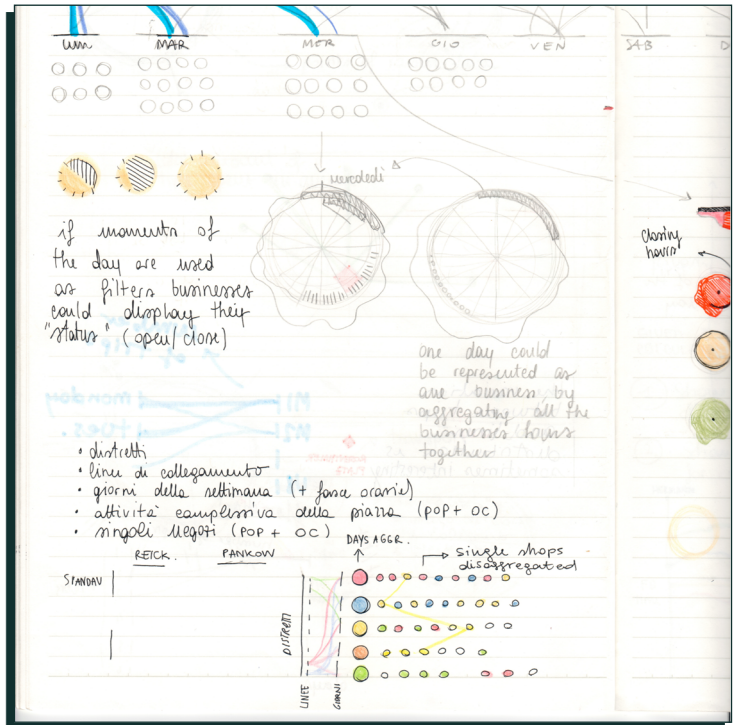 LUN MAR MER GIO VEN SAB D
mercoledì
closing
hours
if moments of
the day are used
as filters businesses
could display they
"status" (open/close)
one day could
be represented as
one business by
aggregating all the
businesses hours
together
monday
tues.
• distretti
• linee di collegamento
• giorni della settimana (+ fasce orarie)
• attività complessiva della piazza (POP + OC)
• singoli negozi (POP + OC)
REICK. PANKOW
DAYS AGGR.
single shops
disaggregated
SPANDAU
DISTRETTI
LINEE
GIORNI